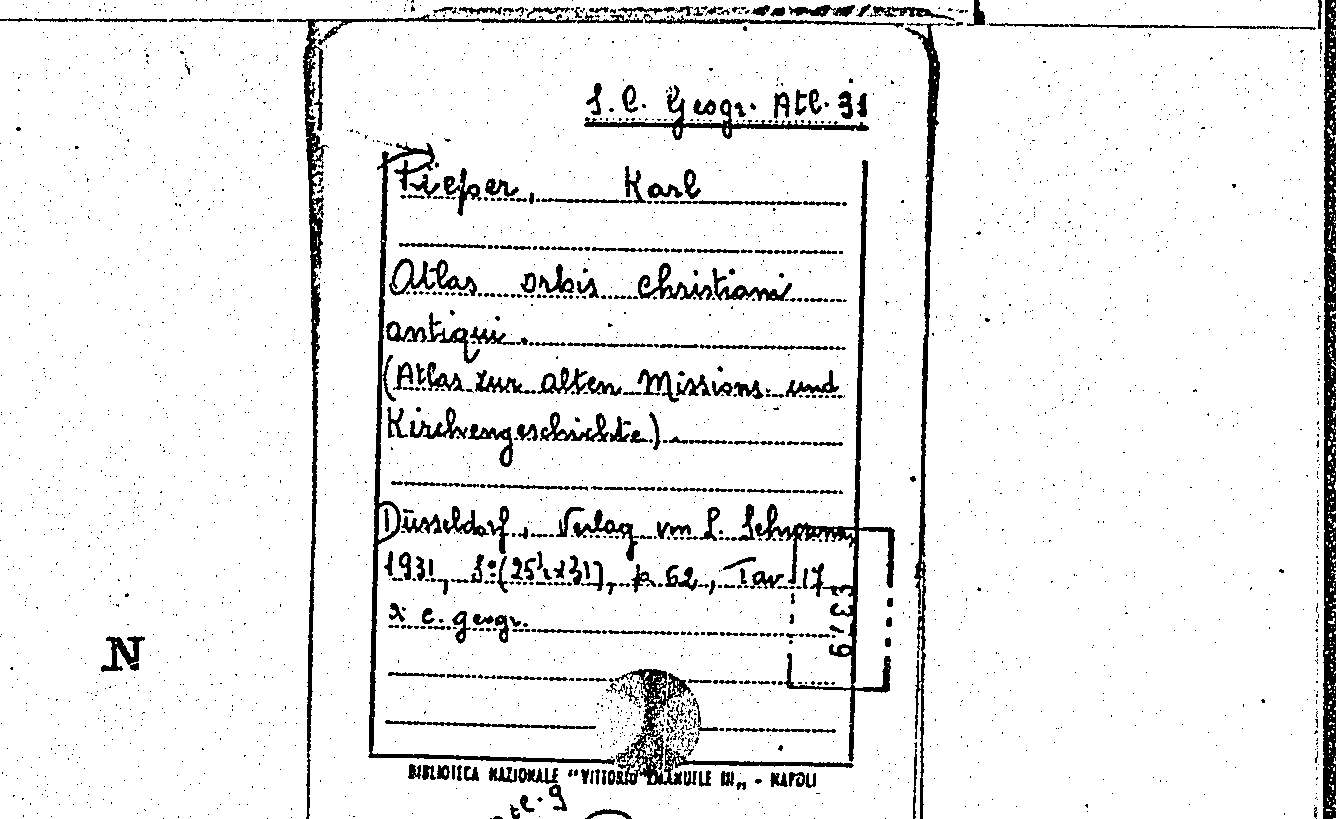 S. C. Geogr. Atl. 31
Pieper, Karl
Atlas orbis christiani
antiqui.
(Atlas zur alten Missions. und
Kirchengeschichte).
Düsseldorf, Verlag von L. Schwann,
1931, 8º (25½x31), p 62, Tav 17
e c. geogr.
3379
N
BIBLIOTECA NAZIONALE "VITTORIO EMANUELE III" - NAPOLI